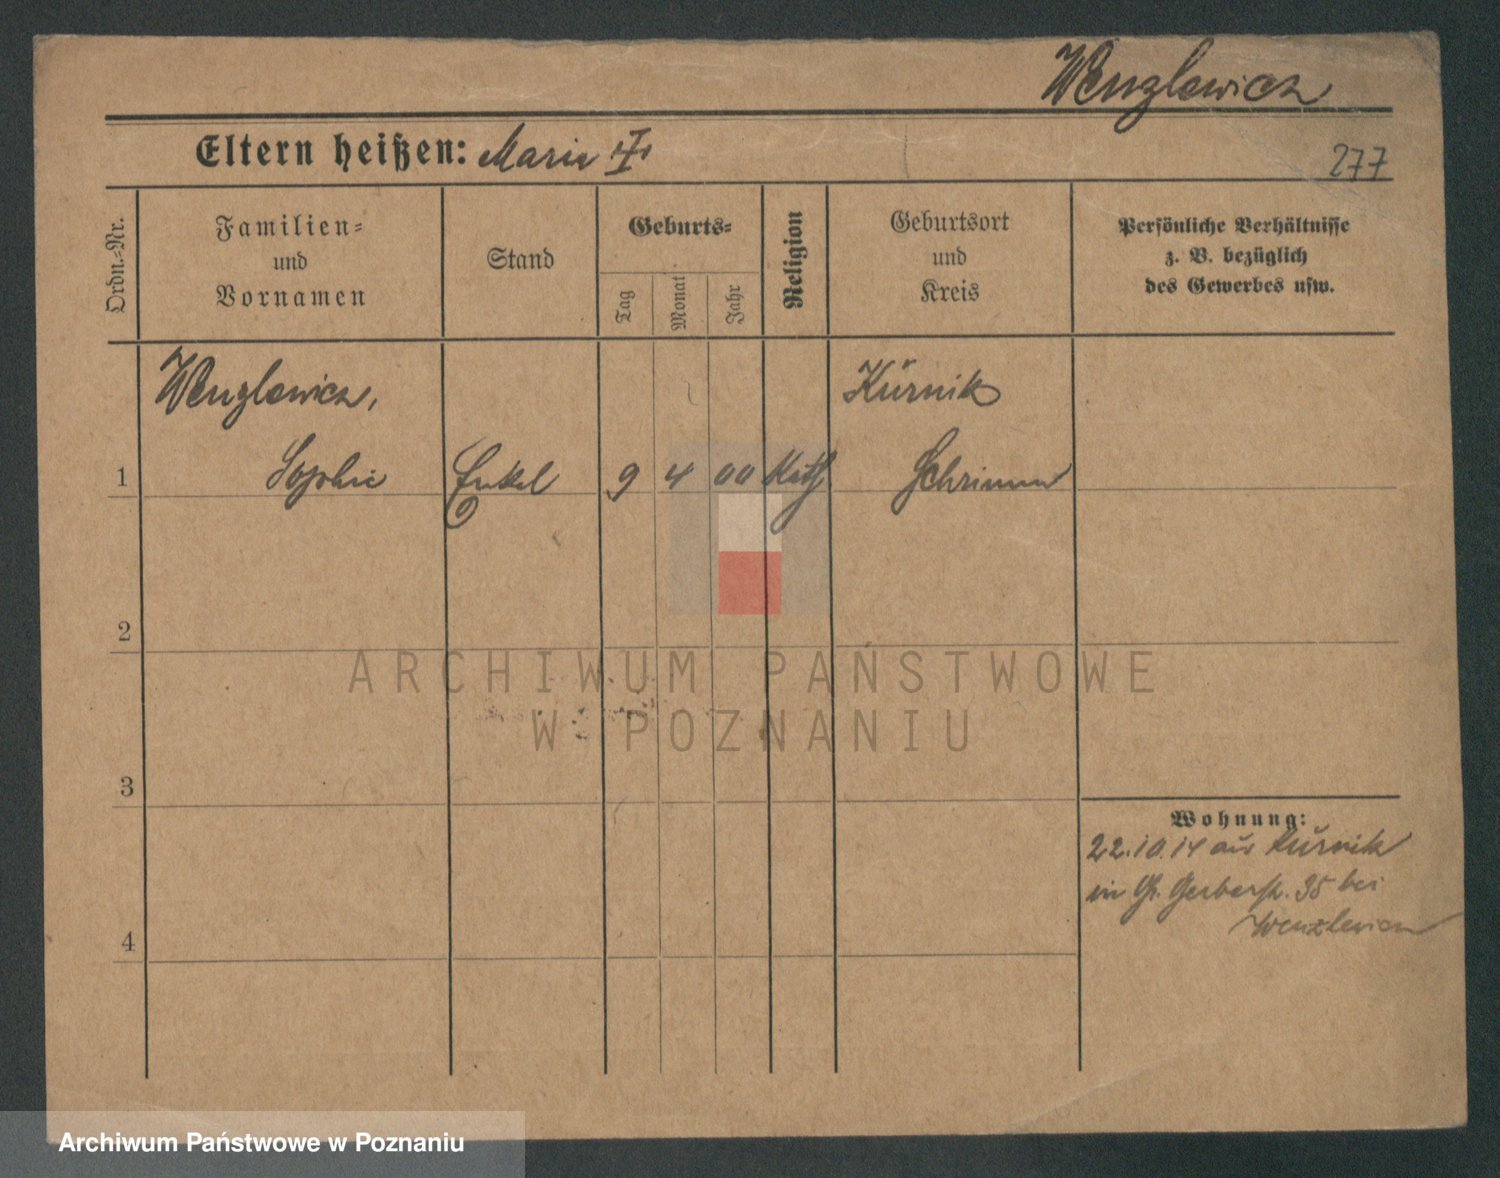 Wenzlewicz
Eltern heißen: Marie
277
Ordn.-Nr.
Familien- und Vornamen
Stand
Geburts-
Tag
Monat
Jahr
Religion
Geburtsort und Kreis
Persönliche Verhältnisse
z. B. bezüglich
des Gewerbes usw.
Wenzlewicz, Kŭrnik
1 Sophie Enkel 9 4 00 Kath Schrimm
2
ARCHIWUM PAŃSTWOWE
W POZNANIU
3
Wohnung:
22.10.14 aus Kŭrnik
in Gr. Gerberstr. 35 bei
Wenzlewicz
4
Archiwum Państwowe w Poznaniu